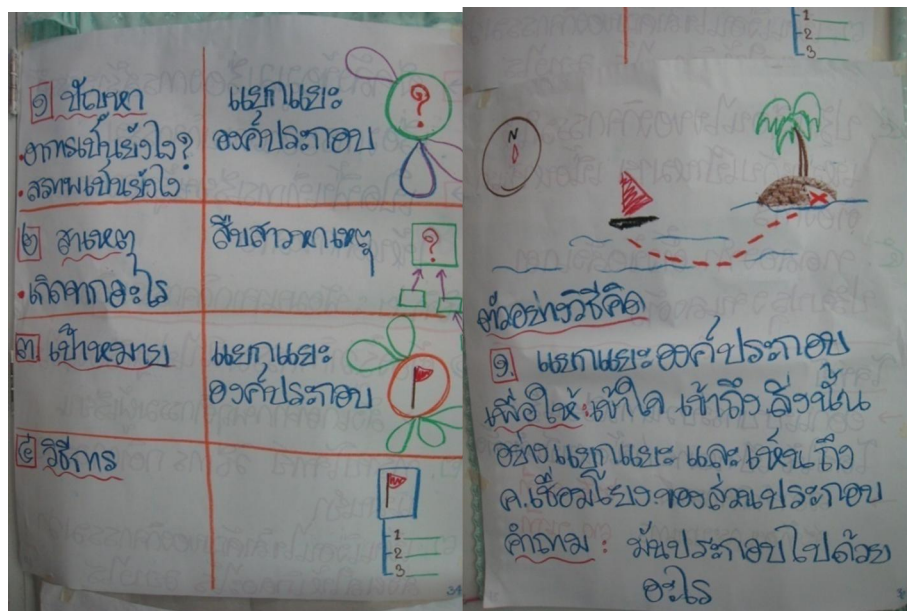 ๑ ปัญหา
• อาการเป็นยังไง?
• สภาพเป็นยังไง
แยกแยะ
องค์ประกอบ
?
๒ สาเหตุ
• เกิดจากอะไร
สืบสาวหาเหตุ
?
๓ เป้าหมาย
แยกแยะ
องค์ประกอบ
๔ วิธีการ
1
2
3
34
1
2
3
N
ตัวอย่างวิธีคิด
๑. แยกแยะองค์ประกอบ
เพื่อให้ : เข้าใจ เข้าถึง สิ่งนั้น
อย่างแยกแยะ และเห็นถึง
ค.เชื่อมโยงของส่วนประกอบ
คำถาม : มันประกอบไปด้วย
อะไร